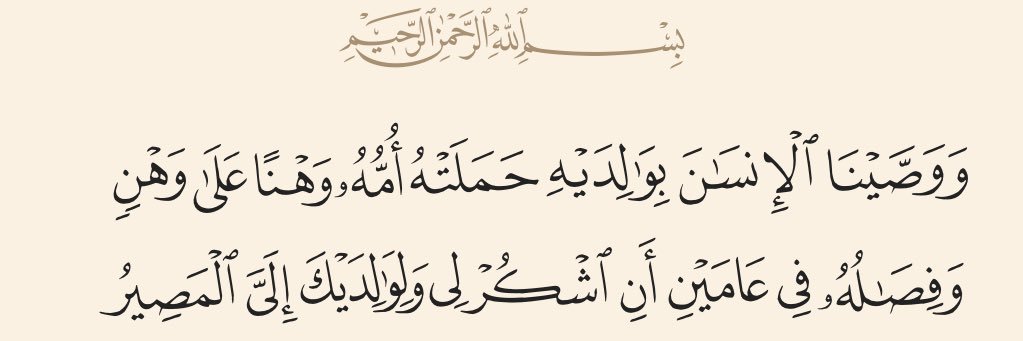 بِسْمِ ٱللَّهِ ٱلرَّحْمَٰنِ ٱلرَّحِيمِ
وَوَصَّيْنَا ٱلْإِنسَٰنَ بِوَٰلِدَيْهِ حَمَلَتْهُ أُمُّهُۥ وَهْنًا عَلَىٰ وَهْنٍ
وَفِصَٰلُهُۥ فِى عَامَيْنِ أَنِ ٱشْكُرْ لِى وَلِوَٰلِدَيْكَ إِلَىَّ ٱلْمَصِيرُ